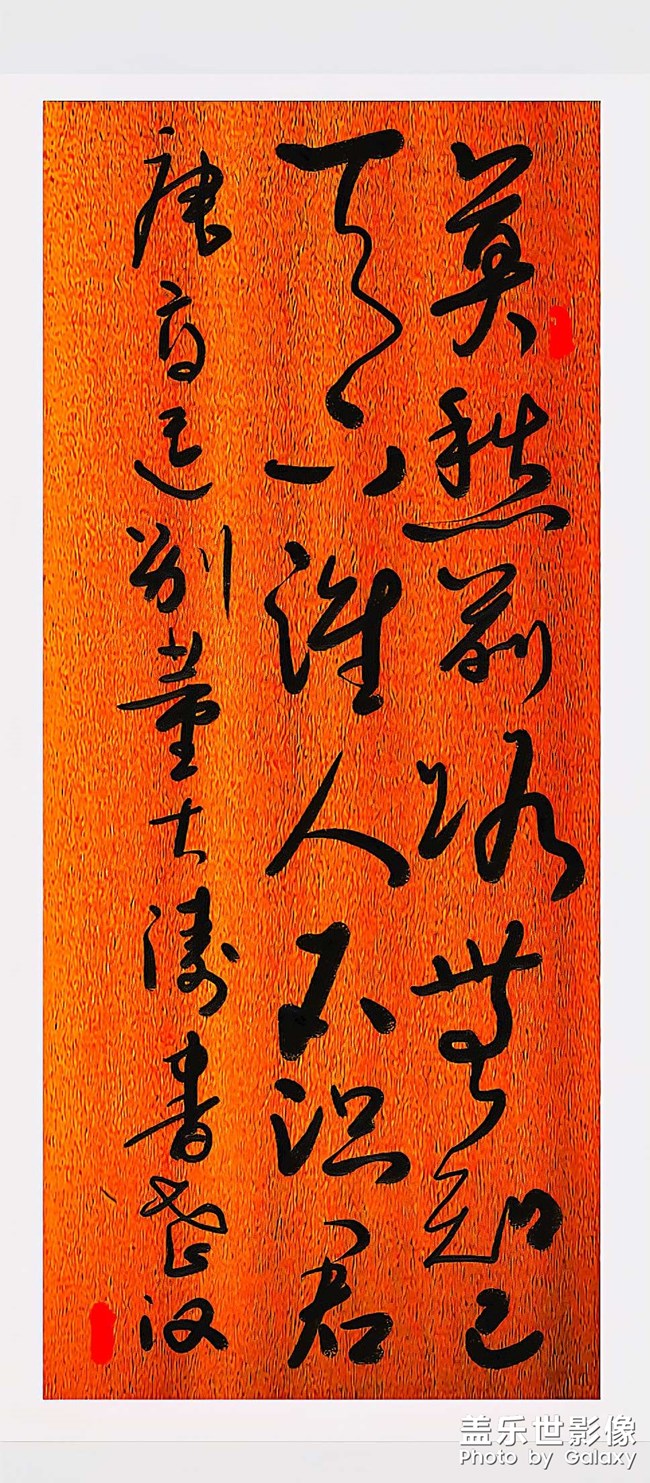 莫愁前路無知己
天下谁人不识君
唐高适别董大涛書汉
盖乐世影像
Photo by Galaxy